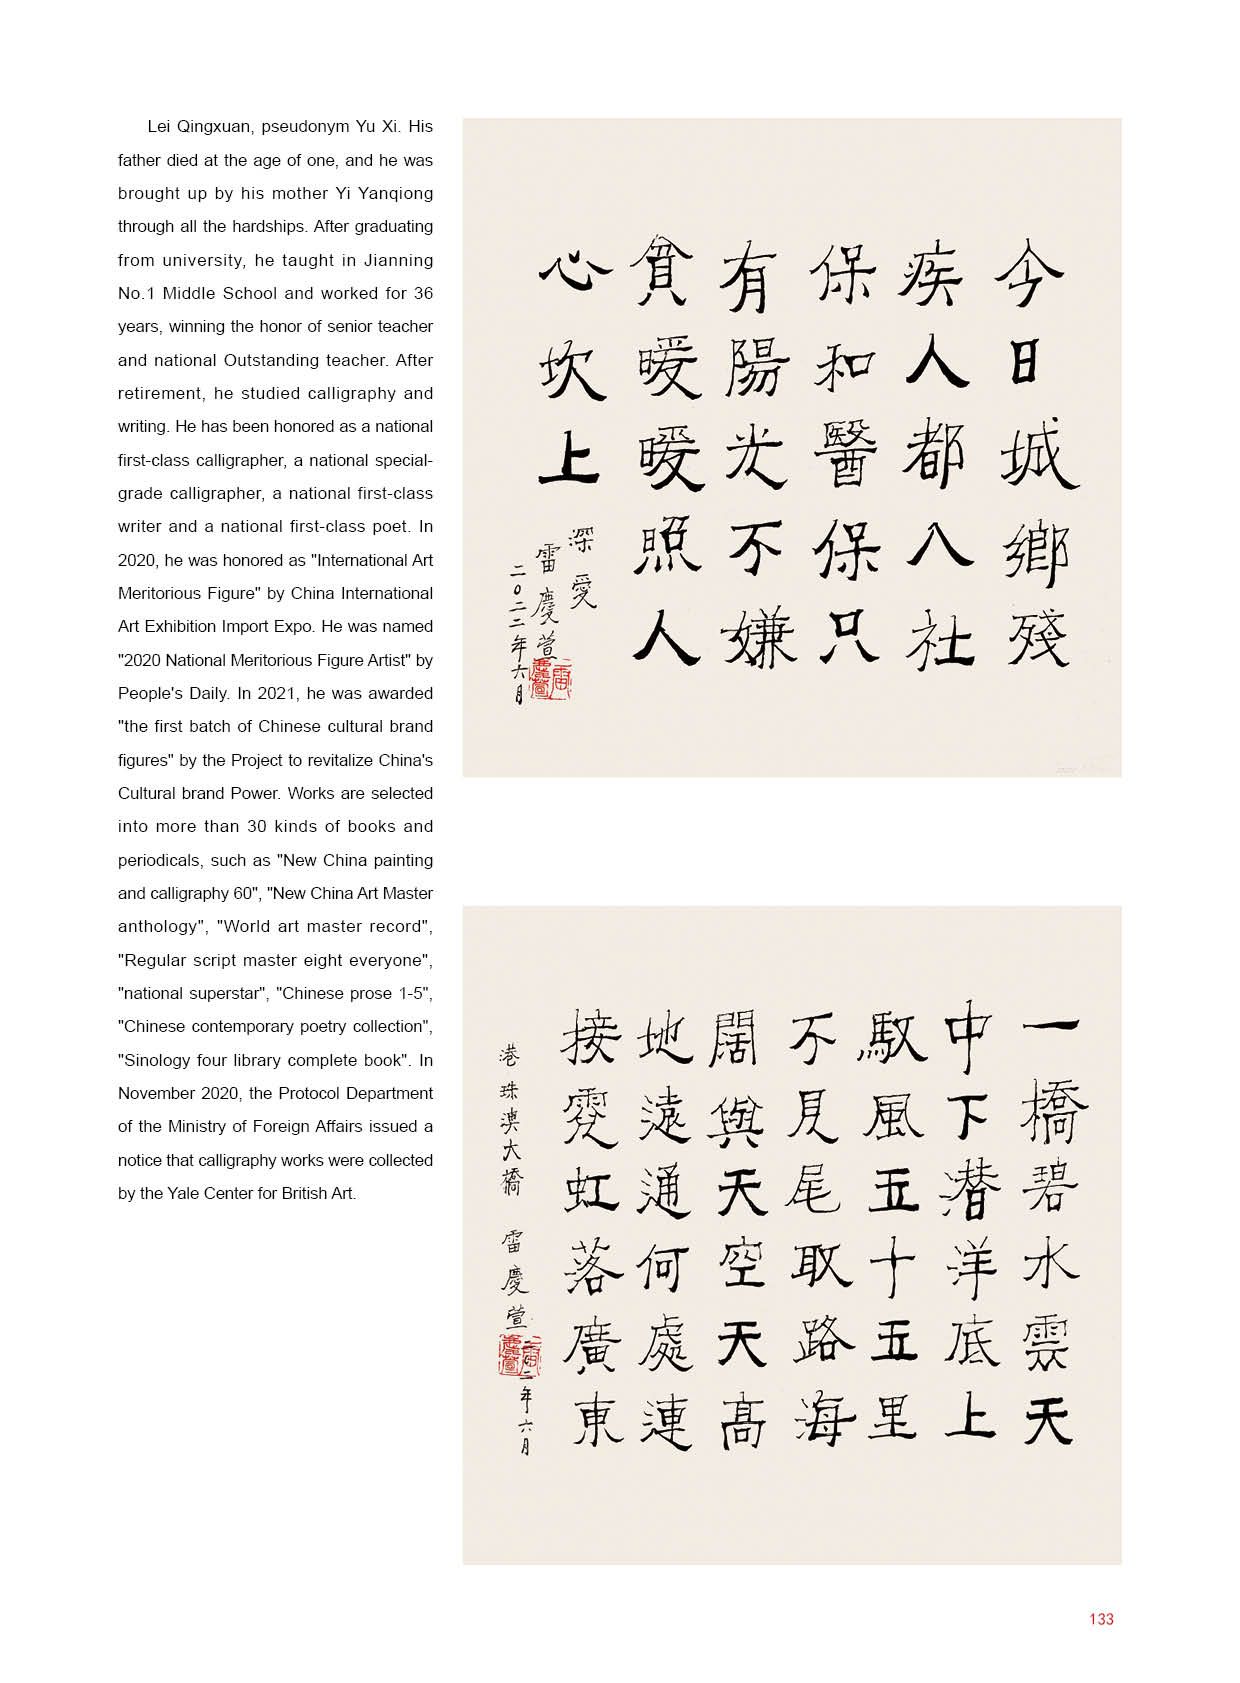 Lei Qingxuan, pseudonym Yu Xi. His
father died at the age of one, and he was
brought up by his mother Yi Yanqiong
through all the hardships. After graduating
from university, he taught in Jianning
No.1 Middle School and worked for 36
years, winning the honor of senior teacher
and national Outstanding teacher. After
retirement, he studied calligraphy and
writing. He has been honored as a national
first-class calligrapher, a national special-
grade calligrapher, a national first-class
writer and a national first-class poet. In
2020, he was honored as "International Art
Meritorious Figure" by China International
Art Exhibition Import Expo. He was named
"2020 National Meritorious Figure Artist" by
People's Daily. In 2021, he was awarded
"the first batch of Chinese cultural brand
figures" by the Project to revitalize China's
Cultural brand Power. Works are selected
into more than 30 kinds of books and
periodicals, such as "New China painting
and calligraphy 60", "New China Art Master
anthology", "World art master record",
"Regular script master eight everyone",
"national superstar", "Chinese prose 1-5",
"Chinese contemporary poetry collection",
"Sinology four library complete book". In
November 2020, the Protocol Department
of the Ministry of Foreign Affairs issued a
notice that calligraphy works were collected
by the Yale Center for British Art.
今日城鄉殘
疾人都入社
保和醫保只
有陽光不嫌
貧暖暖照人
心坎上
深愛
雷慶萱
二〇二二年六月
一橋碧水雲天
中下潛洋底上
馭風五十五里
不見尾取路海
闊與天空天高
地遠通何處連
接霓虹落廣東
港珠澳大橋 雷慶萱
二年六月
133